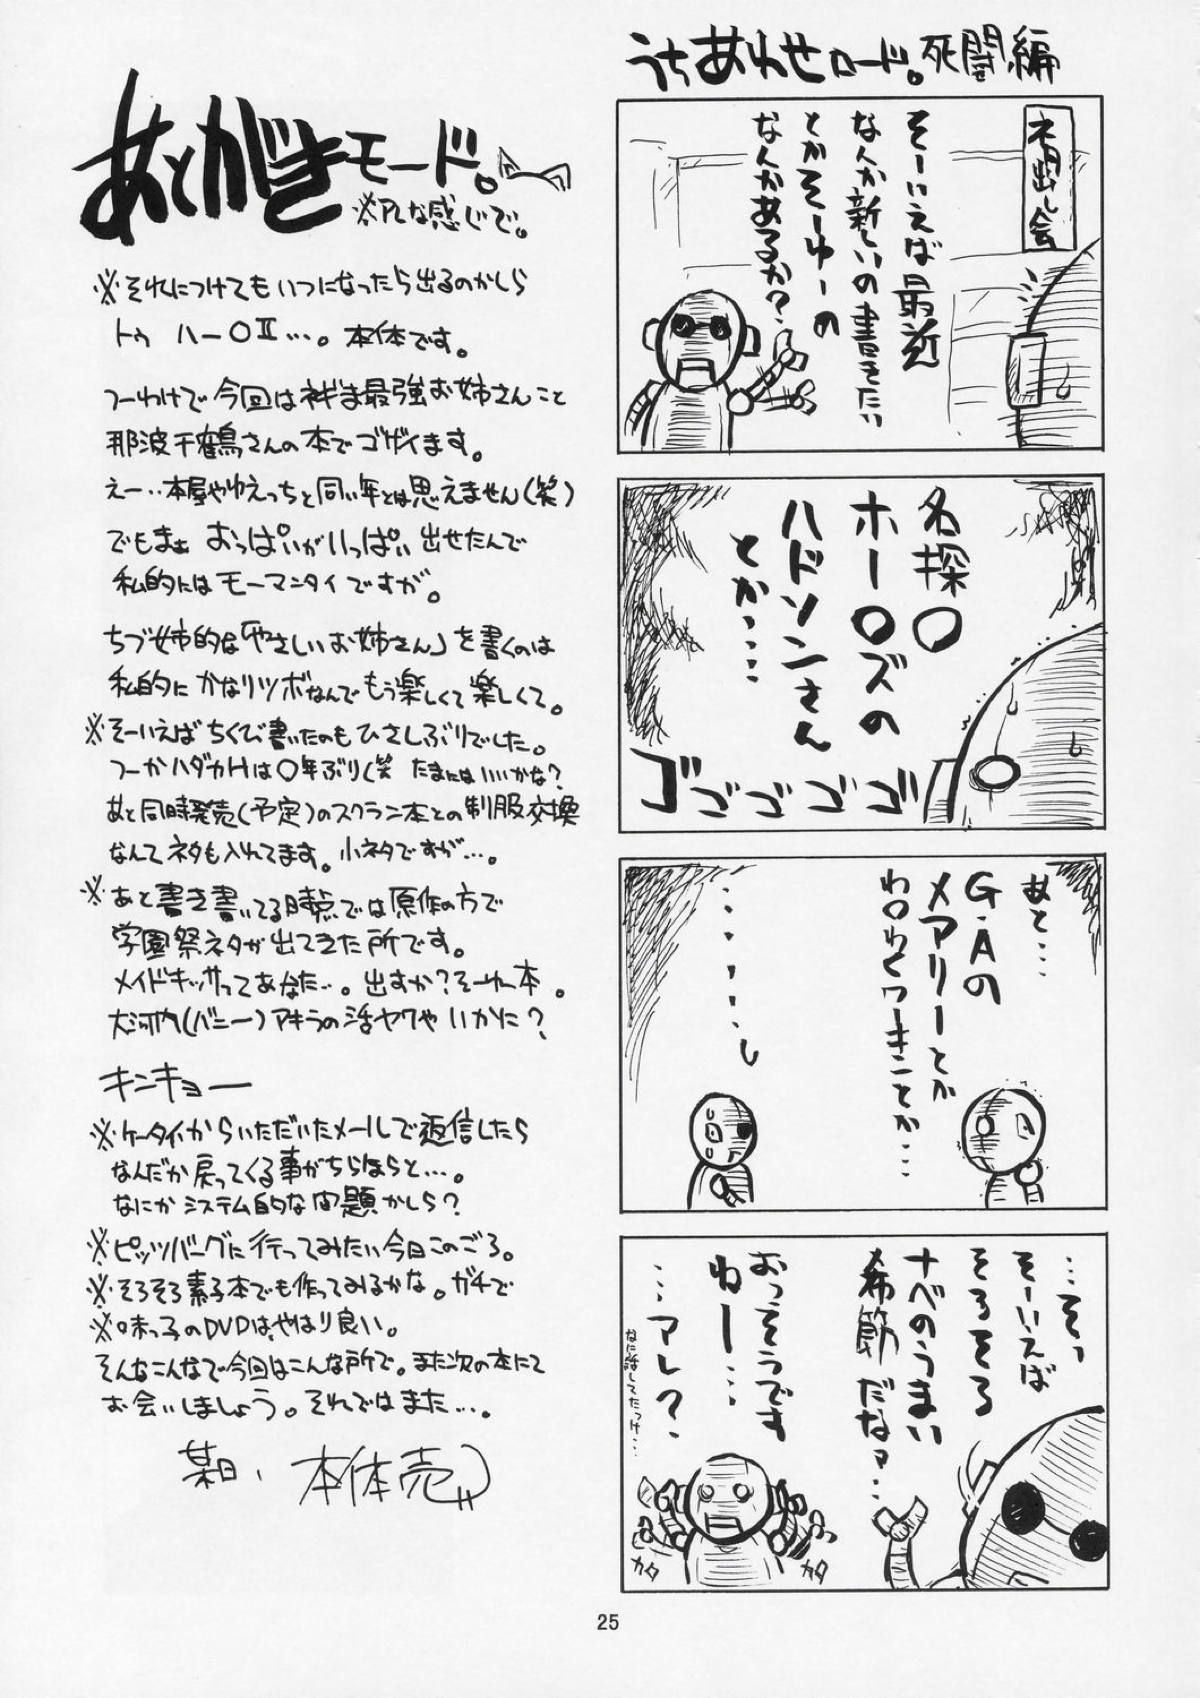 うちあわせロード。死闘編
そーいえば最近
なんか新しいの書きたい
とかそーゆーの
なんかあるか?
名探〇
ホー〇ズの
ハドソンさん
とか…
ゴゴゴゴゴ
あと…
G・Aの
メアリーとか
…そっ
そーいえば
そろそろ
ナベのうまい
季節だなァ…
おっそうです
ねー…
…アレ?
なに話してたっけ…
カタ
カタ
あとがきモード。
※アレな感じで。
※それにつけてもいつになったら出るのかしら
トゥ ハー〇Ⅱ…。本体です。
つーわけで今回はネギま最強お姉さんこと
那波千鶴さんの本でゴザイます。
えー‥本屋やゆえっちと同い年とは思えません(笑)
でもまぁ おっぱいがいっぱい出せたんで
私的にはモーマンタイですが。
ちづ姉的な「やさしいお姉さん」を書くのは
私的にかなりツボなんでもう楽しくて楽しくて。
※そーいえばちくび書いたのもひさしぶりでした。
つーかハダカHは〇年ぶり(笑 たまにはいいかな?
あと同時発売(予定)のスクラン本との制服交換
なんてネタも入れてます。小ネタですが…。
※あと書き書いてる時点では原作の方で
学園祭ネタが出てきた所です。
メイドキッサってあなた‥。出すか?そーゆー本。
大河内(バニー)アキラの活ヤクやいかに?
キンキョー
※ケータイからいただいたメールで返信したら
なんだか戻ってくる事がちらほらと…。
なにかシステム的な問題かしら?
※ピッツバーグに行ってみたい今日このごろ。
※そろそろ素子本でも作ってみるかな。ガチで
※味っ子のDVDは、やはり良い。
そんなこんなで今回はこんな所で。また次の本にて
お会いしましょう。それではまた…。
某日、本体売
25